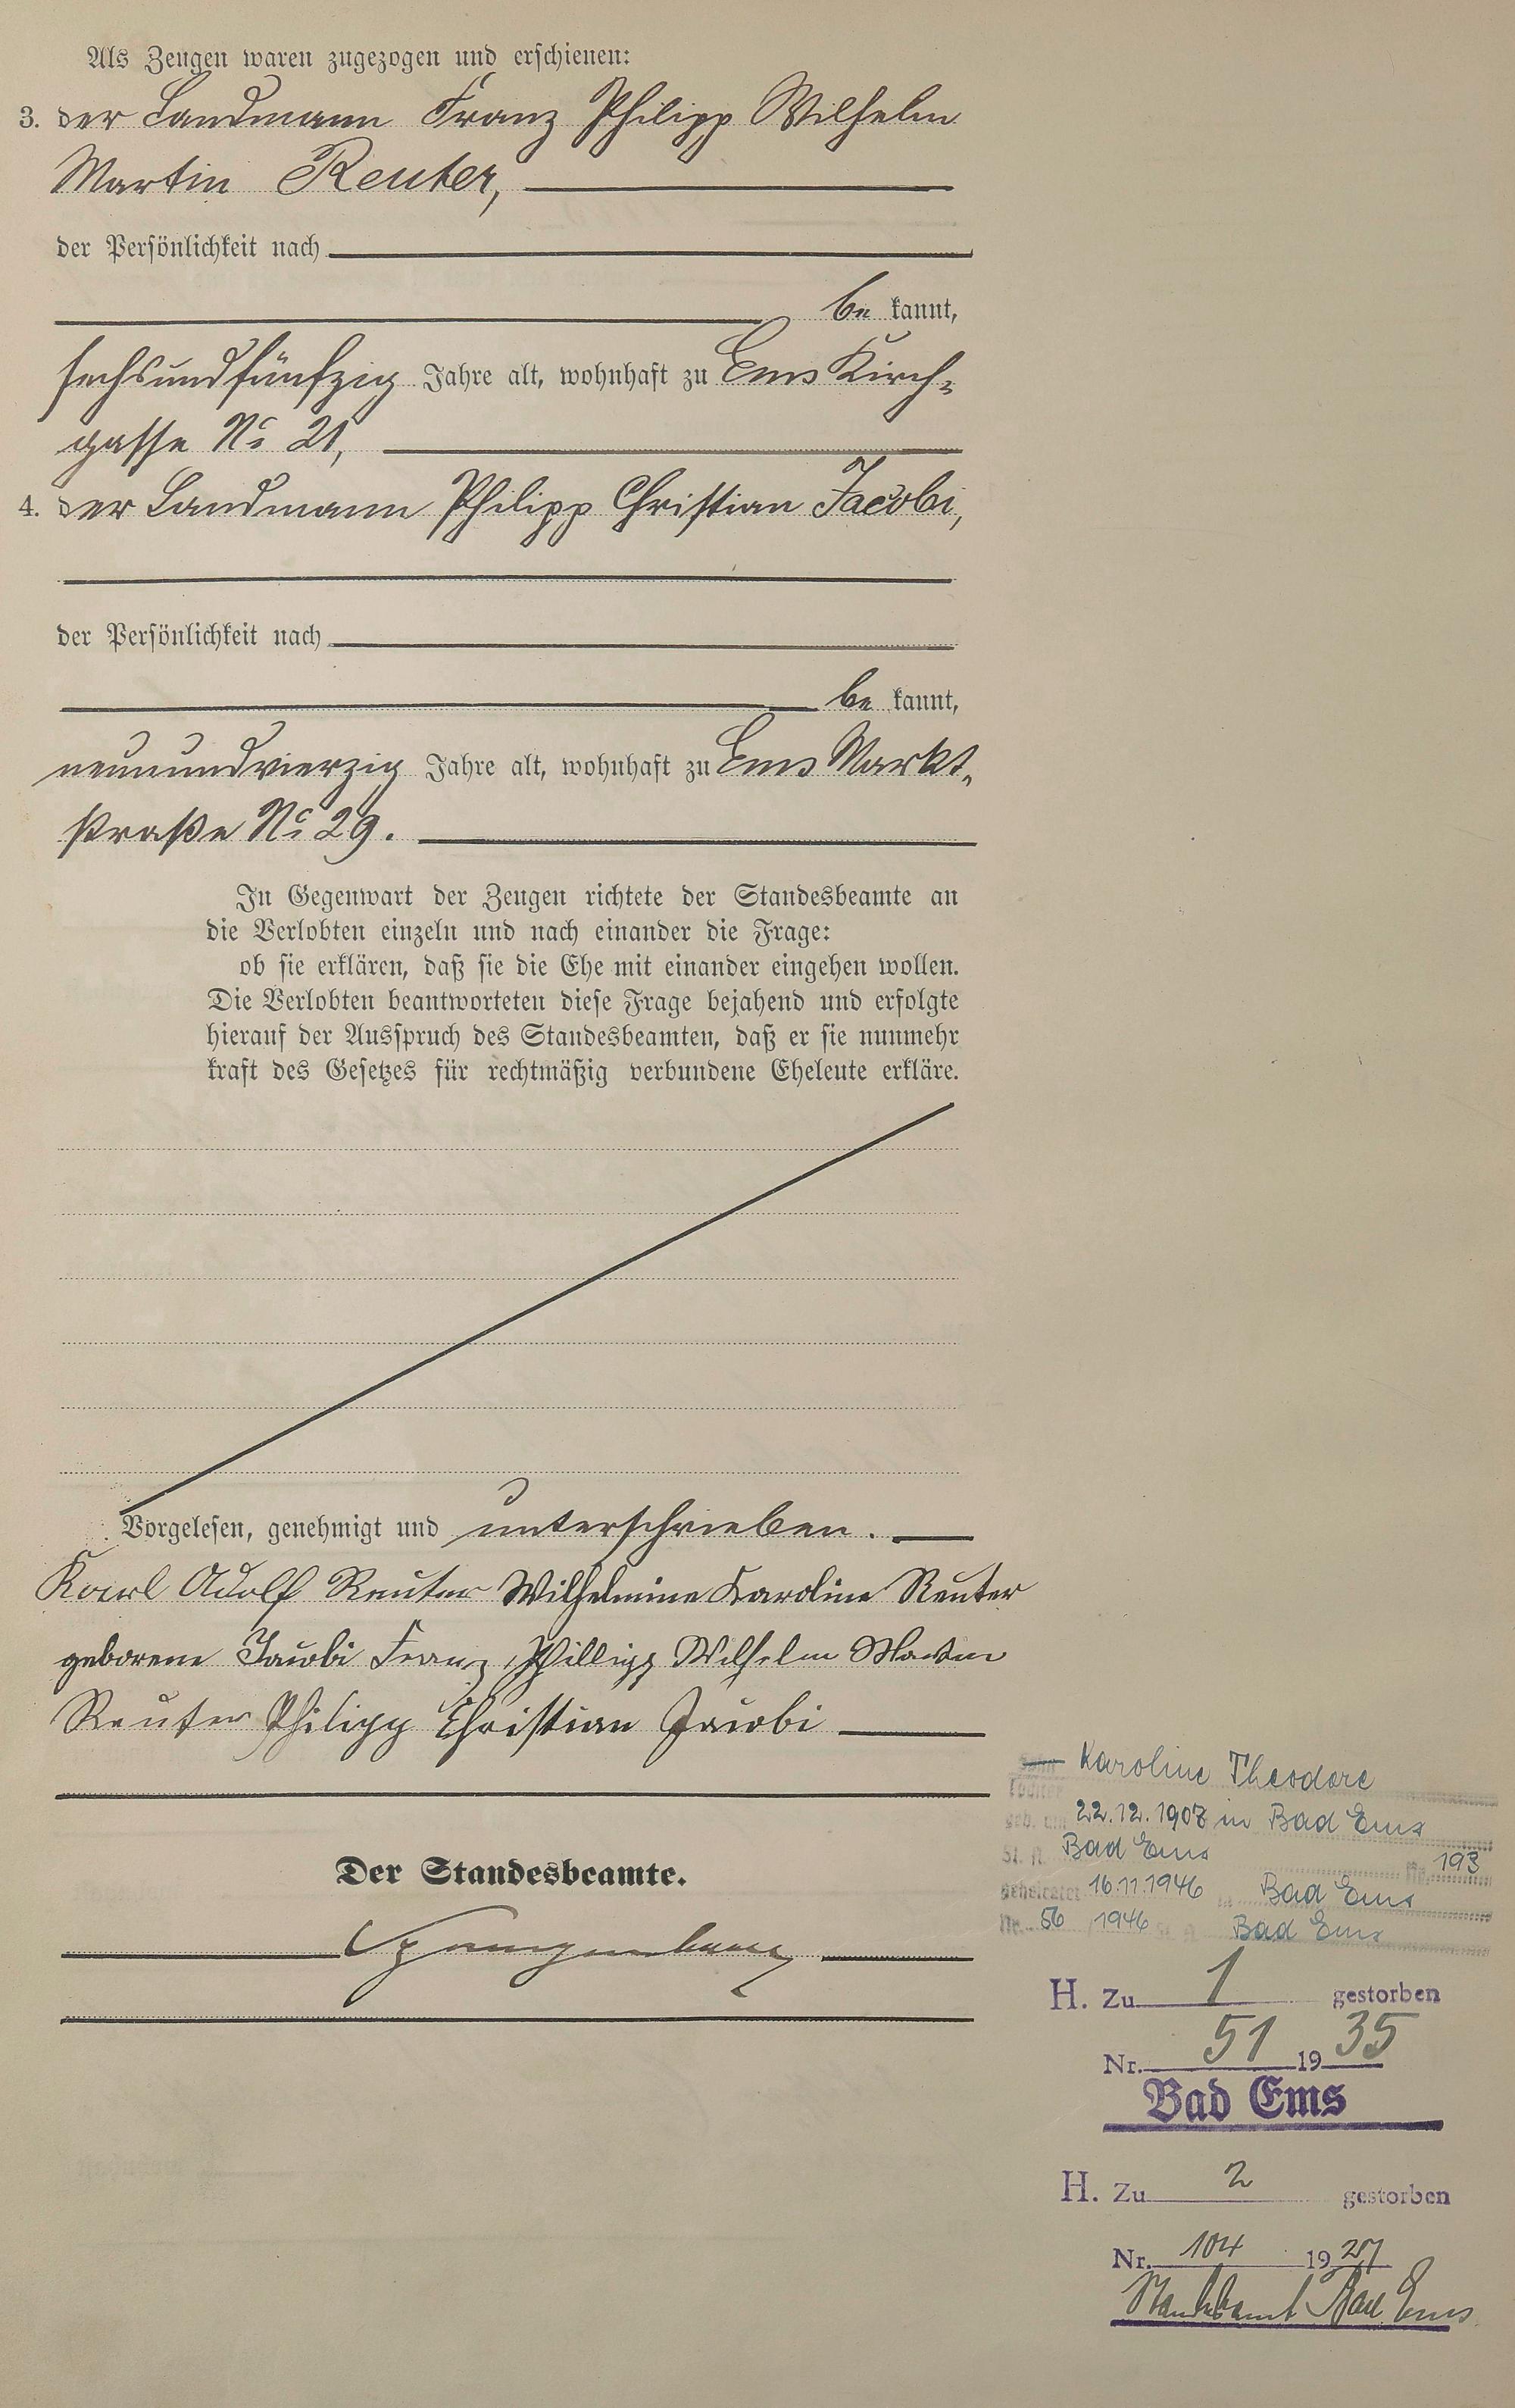 Als Zeugen waren zugezogen und erschienen:
3. der Landmann Franz Philipp Wilhelm
Martin Reuter,
der Persönlichkeit nach
be kannt,
sechsundfünfzig Jahre alt, wohnhaft zu Ems Kirch-
gasse No 21,
4. der Landmann Philipp Christian Jacobi,
der Persönlichkeit nach
be kannt,
neunundvierzig Jahre alt, wohnhaft zu Ems Markt-
straße No 29.
In Gegenwart der Zeugen richtete der Standesbeamte an
die Verlobten einzeln und nach einander die Frage:
ob sie erklären, daß sie die Ehe mit einander eingehen wollen.
Die Verlobten beantworteten diese Frage bejahend und erfolgte
hierauf der Ausspruch des Standesbeamten, daß er sie nunmehr
kraft des Gesetzes für rechtmäßig verbundene Eheleute erkläre.
Vorgelesen, genehmigt und unterschrieben.
Karl Adolf Reuter Wilhelmine Karoline Reuter
geborene Jacobi Franz Phillipp Wilhelm Martin
Reuter Philipp Christian Jacobi
Der Standesbeamte.
Sohn Karoline Theodore
Tochter
geb. am 22.12.1907 in Bad Ems
St. A. Bad Ems Nr. 193
geheiratet 16.11.1946 in Bad Ems
Nr. 56 / 1946 St. A. Bad Ems
H. Zu 1 gestorben
Nr. 51 1935
Bad Ems
H. Zu 2 gestorben
Nr. 104 19
Standesamt Bad Ems